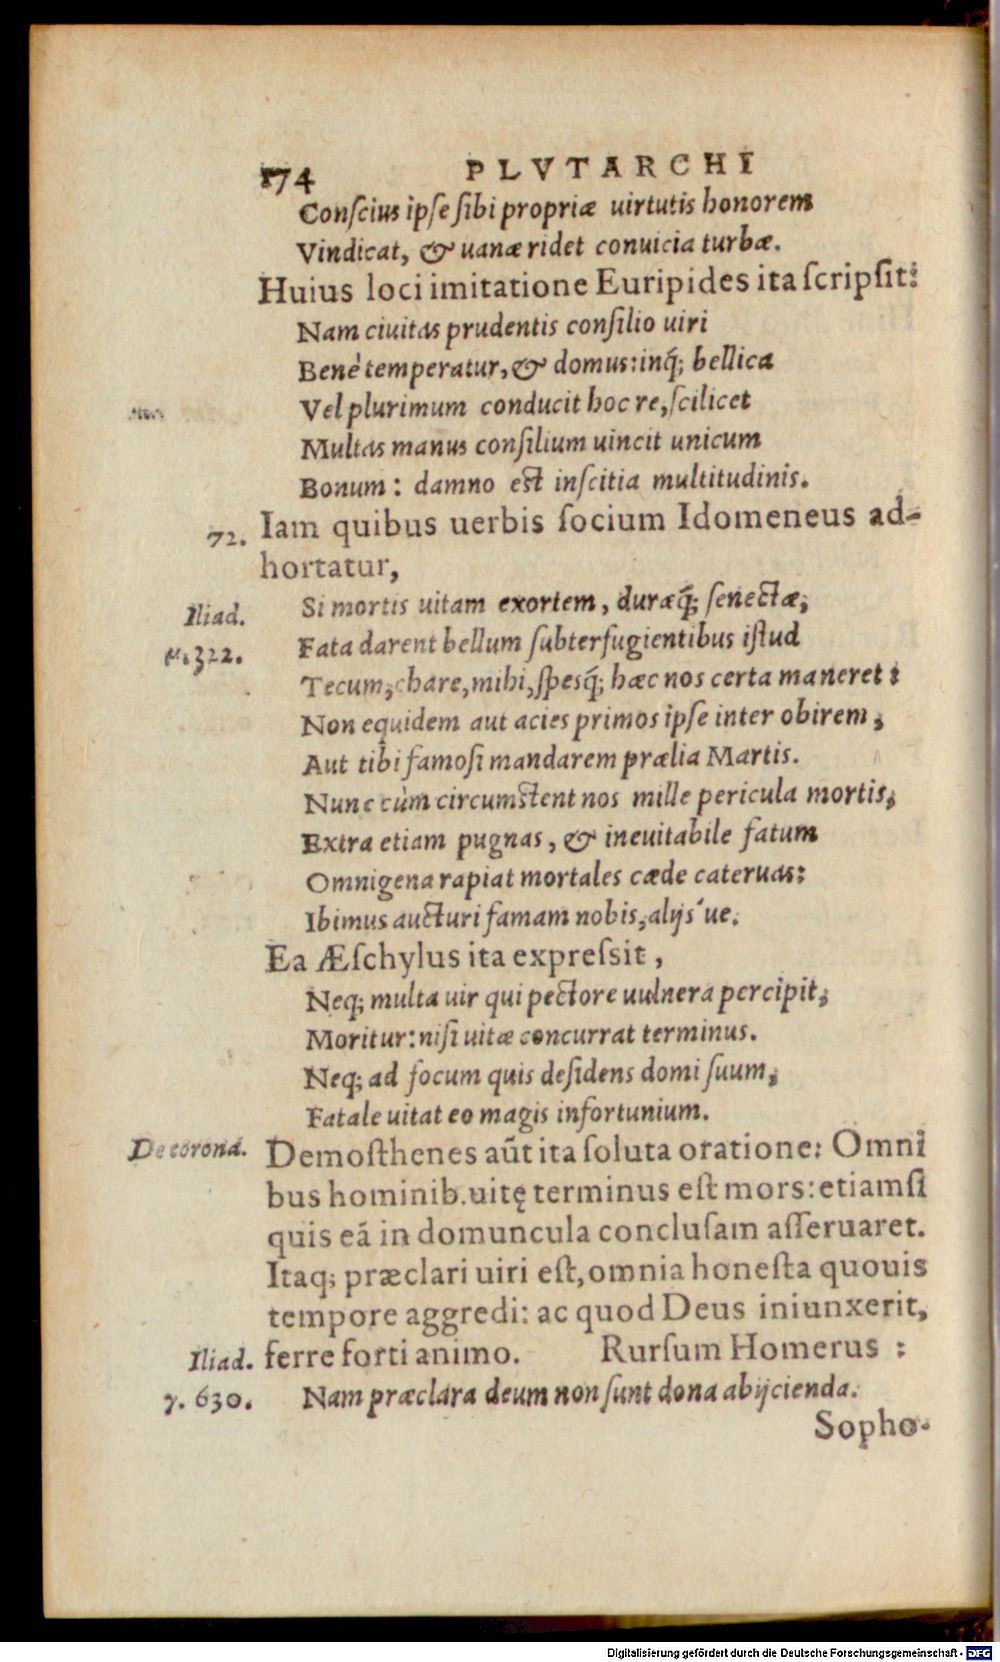 174 PLVTARCHI
Conſcius ipſe ſibi propriæ uirtutis honorem
Vindicat, & uanæ ridet conuicia turbæ.
Huius loci imitatione Euripides ita ſcripſit:
Nam ciuitas prudentis conſilio uiri
Benè temperatur, & domus: inq́; bellica
Vel plurimum conducit hoc re, ſcilicet
Multas manus conſilium uincit unicum
Bonum: damno est inſcitia multitudinis.
72. Iam quibus uerbis ſocium Idomeneus ad-
hortatur,
Iliad. Si mortis uitam exortem, duræq́; ſenectæ,
μ. 322. Fata darent bellum ſubterfugientibus iſtud
Tecum, chare, mihi, ſpesq́; hæc nos certa maneret:
Non equidem aut acies primos ipſe inter obirem,
Aut tibi famoſi mandarem prælia Martis.
Nunc cùm circumstent nos mille pericula mortis,
Extra etiam pugnas, & ineuitabile fatum
Omnigena rapiat mortales cæde cateruas:
Ibimus aucturi famam nobis, alijs´ue.
Ea Æſchylus ita expreſsit,
Neq; multa uir qui pectore uulnera percipit,
Moritur: niſi uitæ concurrat terminus.
Neq; ad focum quis deſidens domi ſuum,
Fatale uitat eo magis infortunium.
De coronâ. Demoſthenes aūt ita ſoluta oratione: Omni
bus hominib. uitę terminus eſt mors: etiamſi
quis eā in domuncula concluſam aſſeruaret.
Itaq; præclari uiri eſt, omnia honeſta quouis
tempore aggredi: ac quod Deus iniunxerit,
Iliad. ferre forti animo. Rurſum Homerus:
γ. 630. Nam præclara deum non ſunt dona abijcienda.
Sopho-
Digitalisierung gefördert durch die Deutsche Forschungsgemeinschaft - DFG